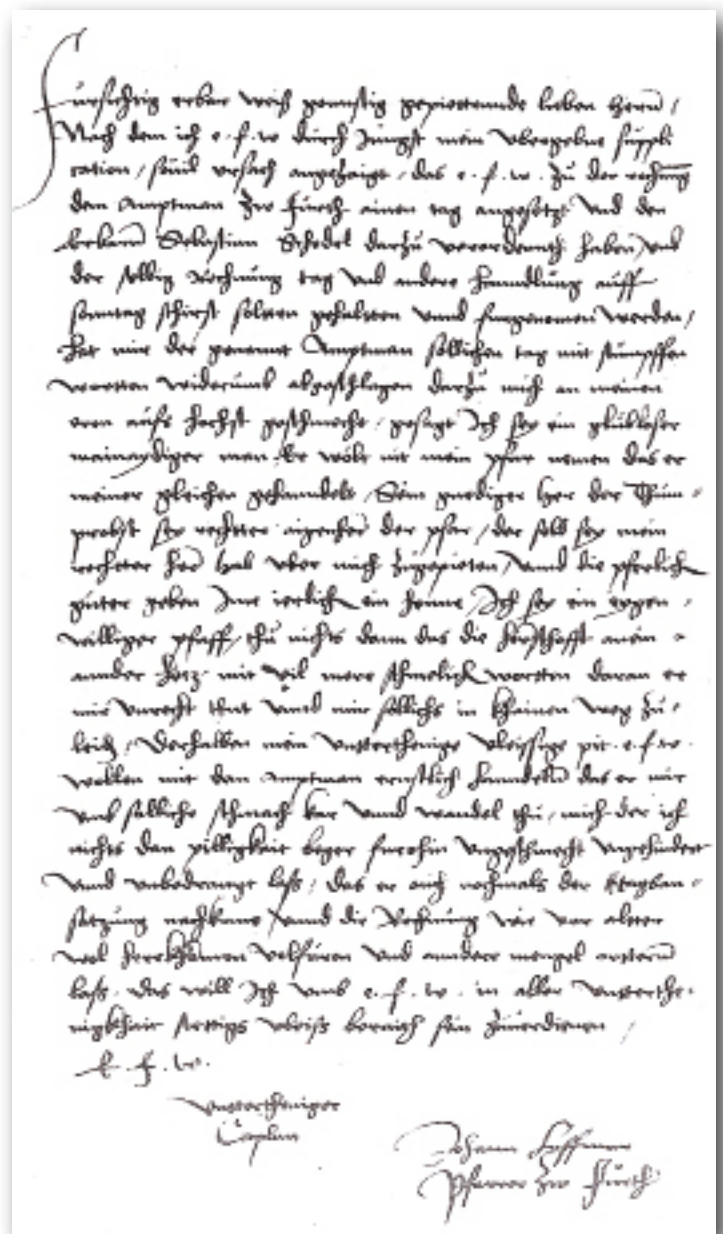 Fursichtig erber weiß gunnstig gepiettennde lieben Herrn /
Nach dem ich e. f. w. durch Jungst mein vbergebne suppli
cation / sovil vrsach angezaigt, das e. f. w. zu der rechnung
dem Amptman zw Furth einen tag angesetzt Vnd den
Sebastian Schedel darzu verordennth haben, vnd
der selbig Rechnung tag vnd andere Hanndlung auff
sonntag schirst soltten gehaltten vnnd furgenomen werden /
Hat mir der genannt Amptman sollichen tag mit stumpffen
wortten widerumb abgeschlagen darzu mich an meinen
eren aufs hochst geschmecht, gesagt Ich sey ein glubloser
mainaydiger man, Er wolt nit mein pfar nemen das er
meiner gleichen gehanndelt, Sein gnediger Her der Thum-
probst sey rechtter aigenherr der pfar / der selb sey mein
rechtter Her Hab vber mich zugepieten / vnnd die pferlich
guter geben Jme ierlich ein Henne / Ich sey ein aygen-
williger pfaff, thu nichts dann das die Herschafft anein-
annder Hetz, mit vil mere schmelich wortten daran er
mir vnrecht thut Vnnd mir sollichs in khainen weg zu-
leid, Derhalben mein vnnderthenige vleissige pit. e. f. w.
wollen mit dem Amptman ernstlich Hanndeln das er mir
vmb solliche schmach ker vnnd wandel thu, mich der ich
nichts dan pilligkait beger furohin vngeschmecht vngehindert
vnnd vnbedranngt laß, das er auch nochmals der
satzung nachkume / vnnd die Rechnung wie vor alter
wol Herkhomen volfuren vnd anndere mengel
laß, das will Ich vmb e. f. w. in aller vnnderthe-
nigkhait stettigs vleiß beraith sein zuverdienen /
E. f. w.
vnndertheniger
Caplan
Johann Hoffman
Pfarrer zw Furth